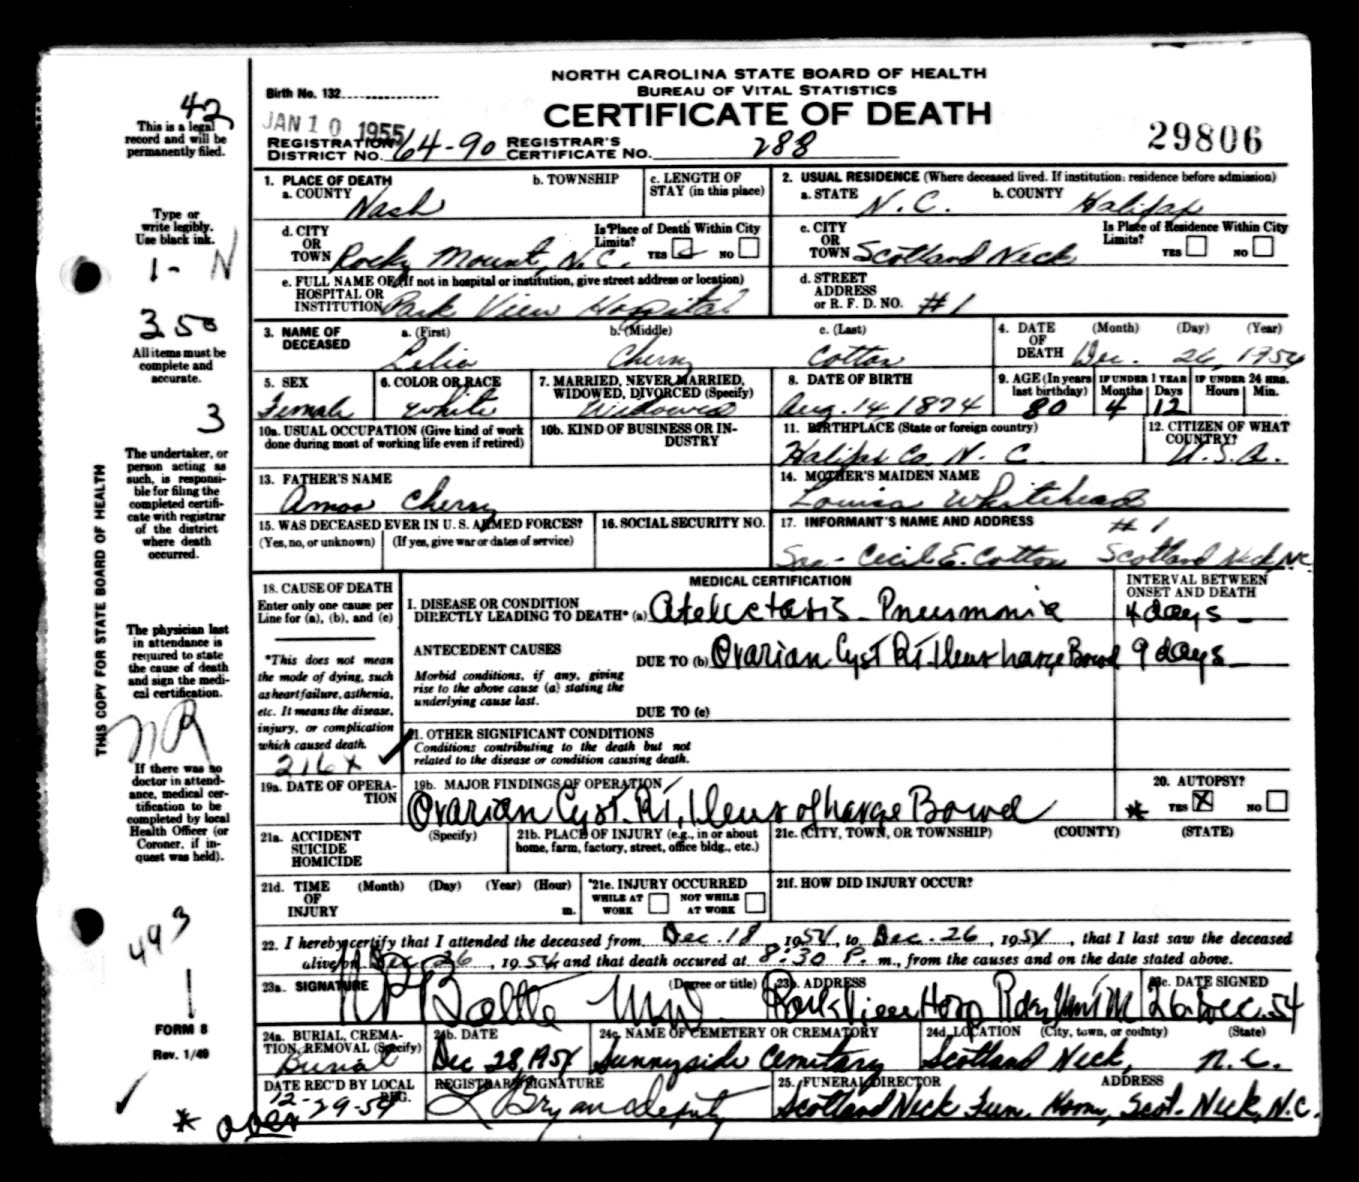 NORTH CAROLINA STATE BOARD OF HEALTH
BUREAU OF VITAL STATISTICS
CERTIFICATE OF DEATH
Birth No. 132
JAN 10 1955
REGISTRATION DISTRICT NO. 64-90 REGISTRAR'S CERTIFICATE NO. 288
29806
42
This is a legal
record and will be
permanently filed.
Type or
write legibly.
Use black ink.
1- N
350
All items must be
complete and
accurate.
3
The undertaker, or
person acting as
such, is responsi-
ble for filing the
completed certifi-
cate with registrar
of the district
where death
occurred.
THIS COPY FOR STATE BOARD OF HEALTH
The physician last
in attendance is
required to state
the cause of death
and sign the medi-
cal certification.
NR
If there was no
doctor in attend-
ance, medical cer-
tification to be
completed by local
Health Officer (or
Coroner, if in-
quest was held).
493
1
FORM 8
Rev. 1/49
* over
1. PLACE OF DEATH
a. COUNTY Nash
b. TOWNSHIP
c. LENGTH OF STAY (in this place)
2. USUAL RESIDENCE (Where deceased lived. If institution: residence before admission)
a. STATE N.C. b. COUNTY Halifax
d. CITY OR TOWN Rocky Mount, N.C.
Is Place of Death Within City Limits? YES NO
c. CITY OR TOWN Scotland Neck
Is Place of Residence Within City Limits? YES NO
e. FULL NAME OF (If not in hospital or institution, give street address or location)
HOSPITAL OR INSTITUTION Park View Hospital
d. STREET ADDRESS or R. F. D. NO. #1
3. NAME OF DECEASED
a. (First) Lelia b. (Middle) Cherry c. (Last) Cotton
4. DATE OF DEATH (Month) (Day) (Year) Dec. 26, 1954
5. SEX Female
6. COLOR OR RACE White
7. MARRIED, NEVER MARRIED, WIDOWED, DIVORCED (Specify) Widowed
8. DATE OF BIRTH Aug. 14, 1874
9. AGE (In years last birthday) 80
IF UNDER 1 YEAR Months 4 Days 12
IF UNDER 24 HRS. Hours Min.
10a. USUAL OCCUPATION (Give kind of work done during most of working life even if retired)
10b. KIND OF BUSINESS OR INDUSTRY
11. BIRTHPLACE (State or foreign country) Halifax Co. N. C.
12. CITIZEN OF WHAT COUNTRY? U.S.A.
13. FATHER'S NAME Amos Cherry
14. MOTHER'S MAIDEN NAME Louisa Whitehead
15. WAS DECEASED EVER IN U.S. ARMED FORCES?
(Yes, no, or unknown) (If yes, give war or dates of service)
16. SOCIAL SECURITY NO.
17. INFORMANT'S NAME AND ADDRESS #1
Cecil E. Cotton Scotland Neck, N.C.
18. CAUSE OF DEATH
Enter only one cause per
Line for (a), (b), and (c)
*This does not mean
the mode of dying, such
as heart failure, asthenia,
etc. It means the disease,
injury, or complication
which caused death.
216X
MEDICAL CERTIFICATION
INTERVAL BETWEEN ONSET AND DEATH
I. DISEASE OR CONDITION
DIRECTLY LEADING TO DEATH* (a) Atelectasis - Pneumonia 4 days
ANTECEDENT CAUSES
DUE TO (b) Ovarian Cyst Rt. Ileus Large Bowel 9 days
Morbid conditions, if any, giving
rise to the above cause (a) stating the
underlying cause last.
DUE TO (c)
II. OTHER SIGNIFICANT CONDITIONS
Conditions contributing to the death but not
related to the disease or condition causing death.
19a. DATE OF OPERATION
19b. MAJOR FINDINGS OF OPERATION
Ovarian Cyst. Rt, Ileus of Large Bowel
20. AUTOPSY?
* YES X NO
21a. ACCIDENT SUICIDE HOMICIDE (Specify)
21b. PLACE OF INJURY (e.g., in or about home, farm, factory, street, office bldg., etc.)
21c. (CITY, TOWN, OR TOWNSHIP) (COUNTY) (STATE)
21d. TIME OF INJURY (Month) (Day) (Year) (Hour) m.
21e. INJURY OCCURRED
WHILE AT WORK NOT WHILE AT WORK
21f. HOW DID INJURY OCCUR?
22. I hereby certify that I attended the deceased from Dec. 18, 1954, to Dec. 26, 1954, that I last saw the deceased
alive on Dec 26, 1954, and that death occured at 8:30 P. m., from the causes and on the date stated above.
23a. SIGNATURE (Degree or title) Battle MD
23b. ADDRESS Park View Hosp Rocky Mount
23c. DATE SIGNED 26 Dec. 54
24a. BURIAL, CREMATION, REMOVAL (Specify) Burial
24b. DATE Dec 28, 1954
24c. NAME OF CEMETERY OR CREMATORY Sunnyside Cemetary
24d. LOCATION (City, town, or county) (State) Scotland Neck, N.C.
DATE REC'D BY LOCAL REG. 12-29-54
REGISTRAR'S SIGNATURE L Bryan Deputy
25. FUNERAL DIRECTOR ADDRESS
Scotland Neck Fun. Home, Scot. Neck, N.C.